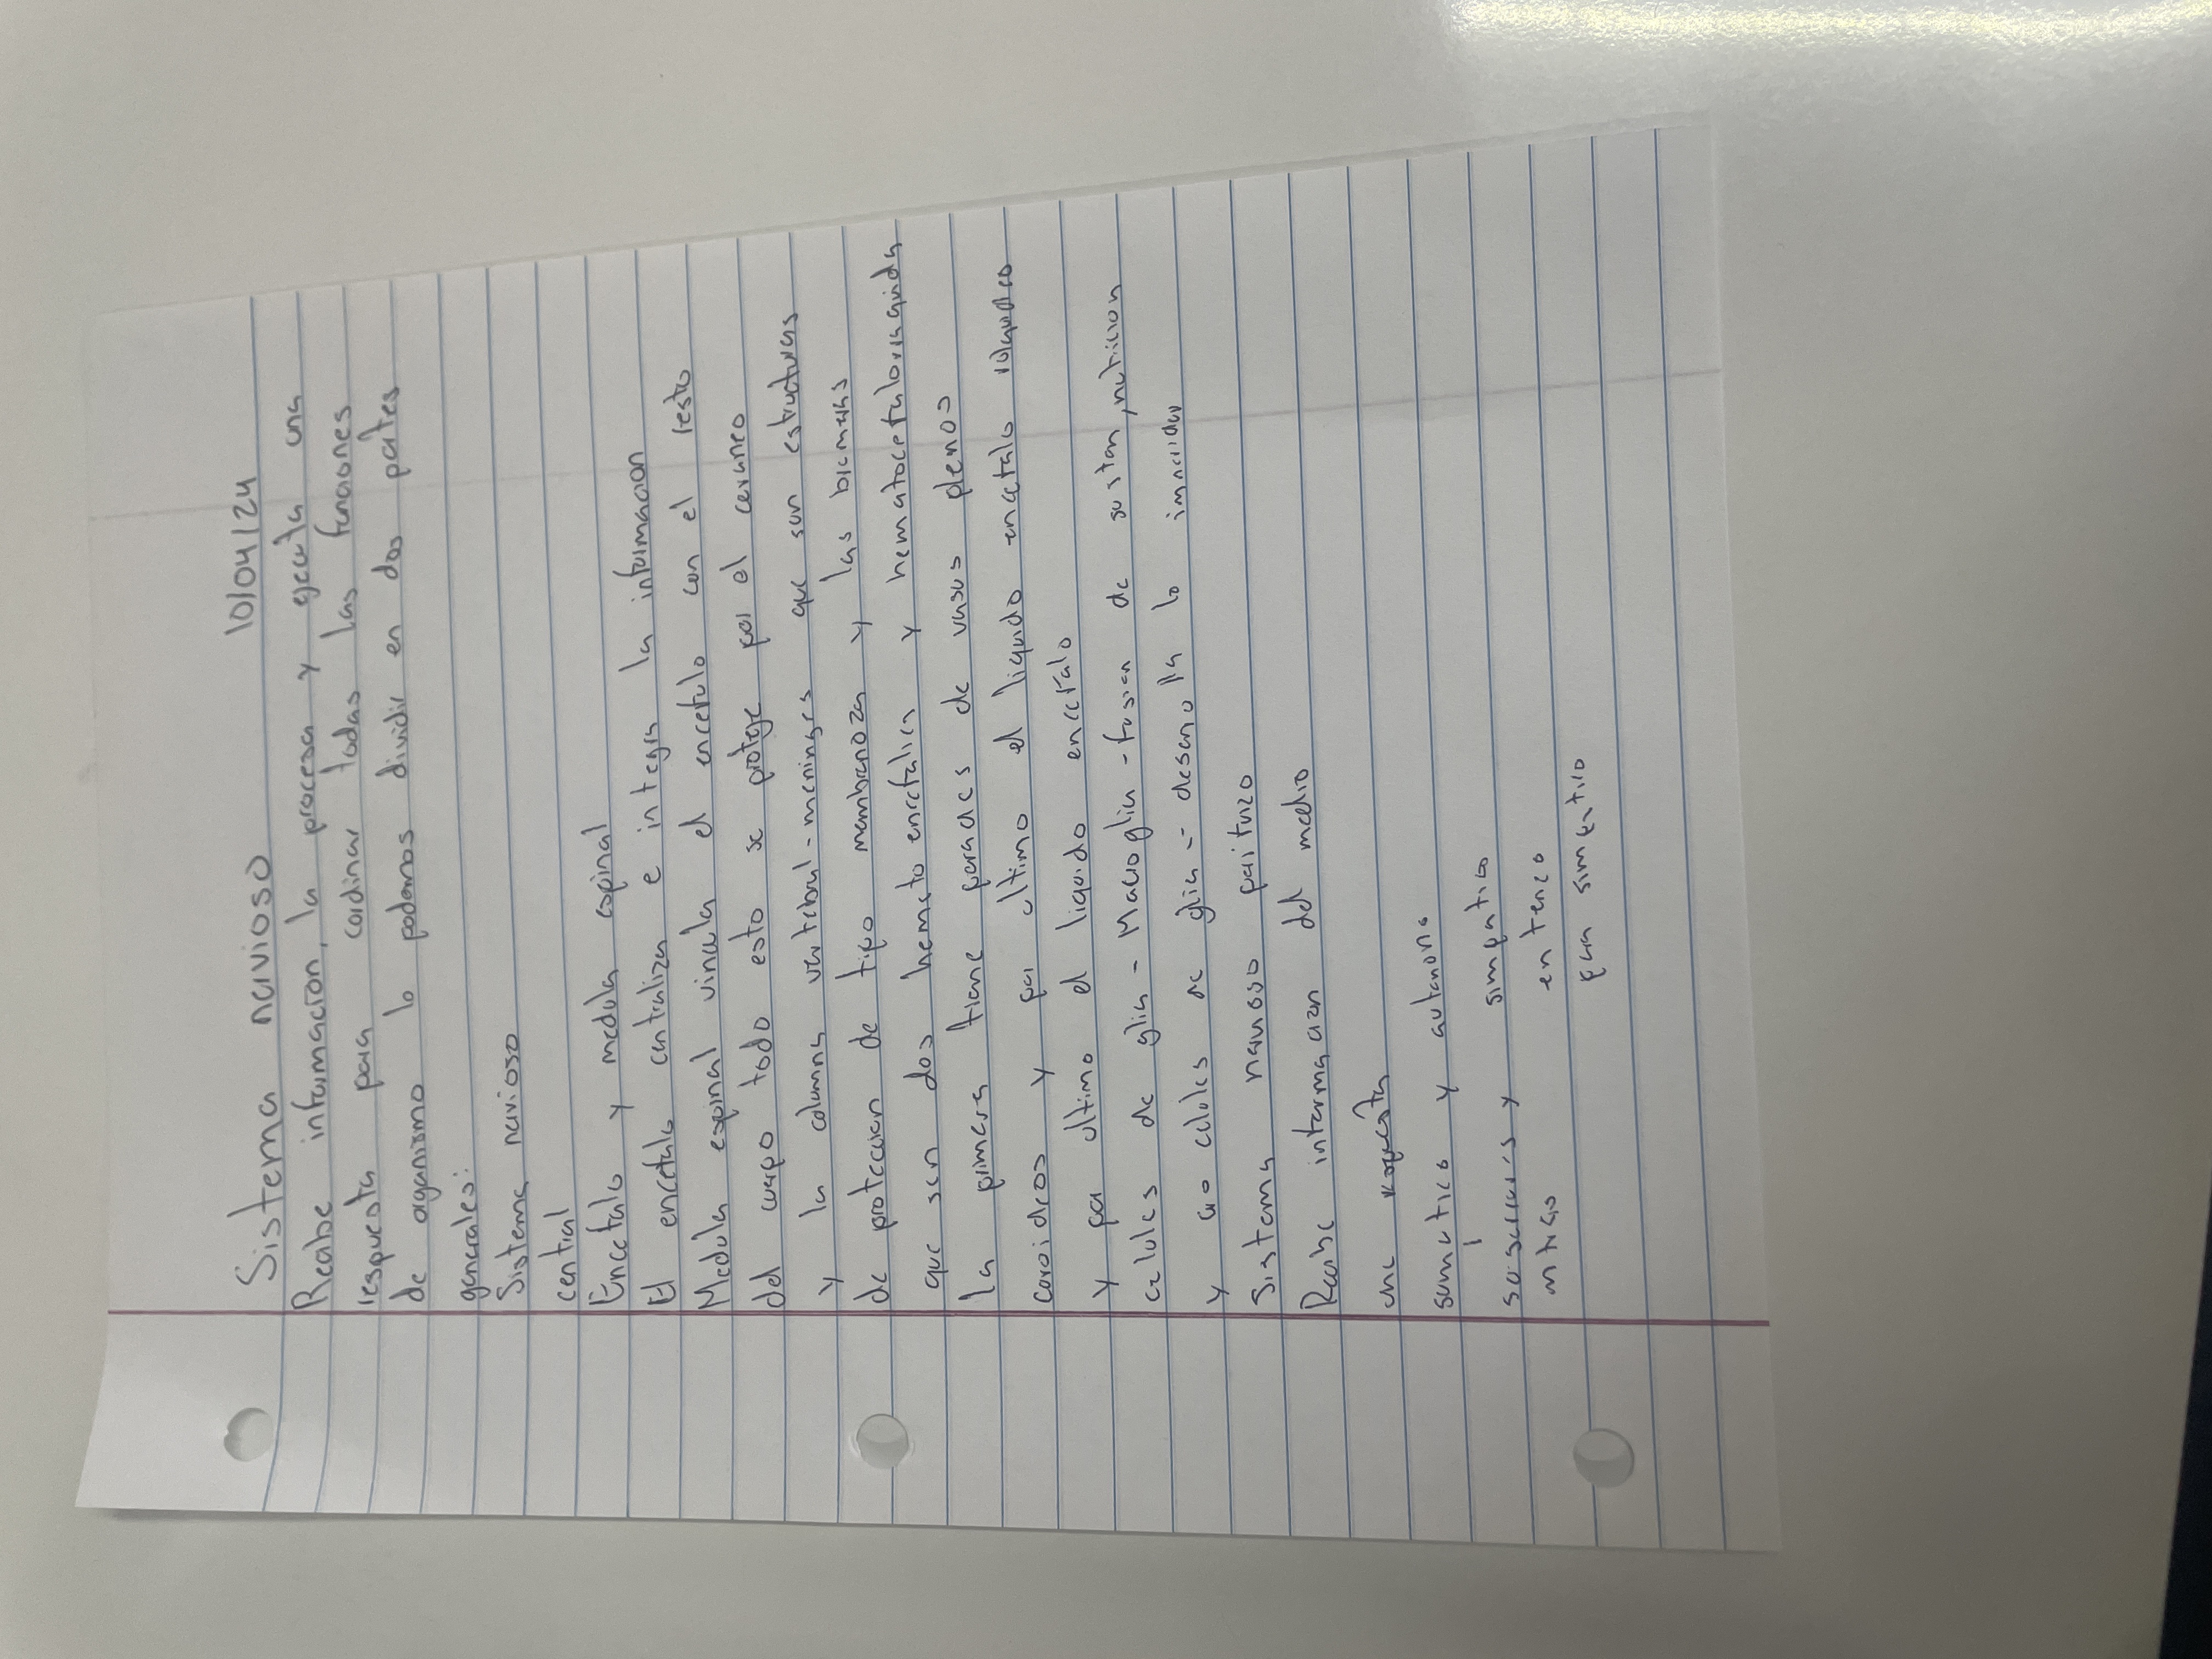 Sistema nervioso 10/04/24
Recibe informacion, la procesa y ejecuta una
respuesta para cordinar todas las funciones
de organismo lo podemos dividir en dos partes
generales:
Sistema nervioso
central
Encefalo y medula espinal
El encefalo centraliza e integra la informacion
Medula espinal vincula el encefalo con el resto
del cuerpo todo esto se proteje por el craneo
y la columna vertebral - meninges que son estructuras
de proteccion de tipo membranoza y las barreras
que son dos hemato encefalica y
la primera tiene paredes de vasos plenos
coroideos y por ultimo el liquido encefalo raquideo
y por ultimo el liquido encefalo
celulas de glia - Macroglia - fusion de sosten, nutricion
y celulas de glia - desarrolla lo
Sistema nervioso
Recibe informacion del medio
una respuesta
somatico y autonomo
y simpatico
enterico
para simpatico